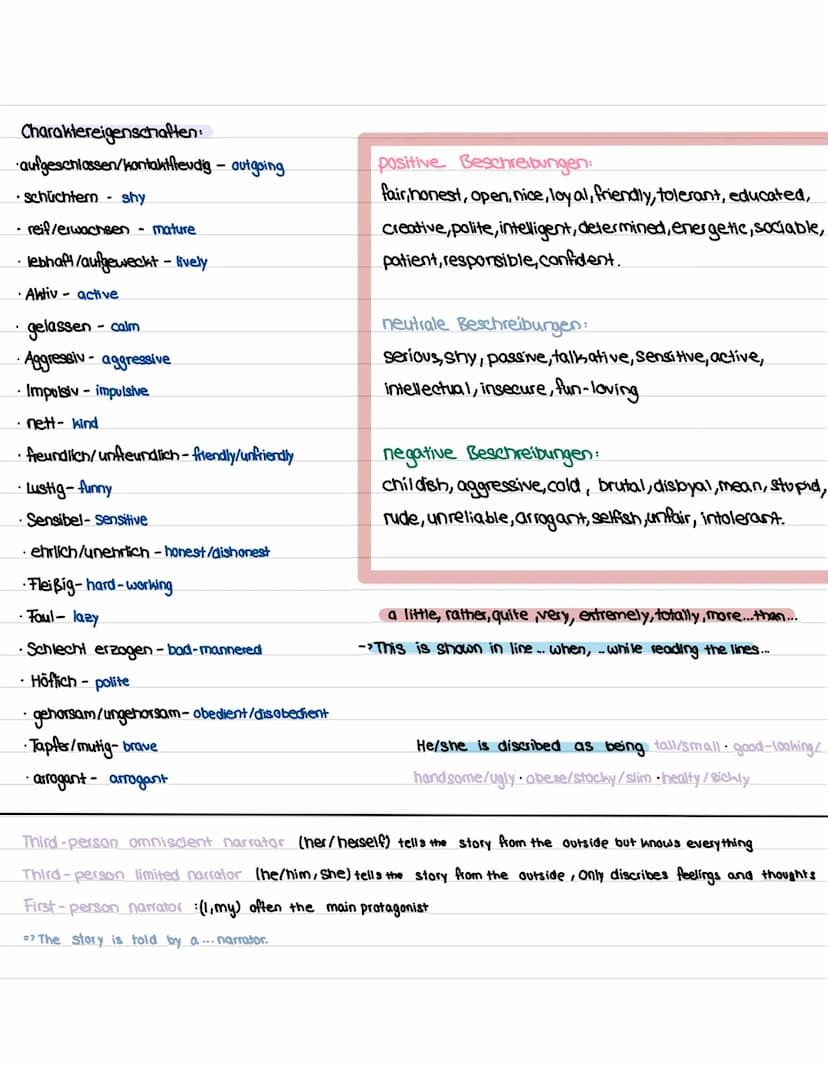 Charaktereigenschaften:
·aufgeschlossen/kontaktfreudig – outgoing
· schüchtern - shy
· reif/erwachsen - mature
· lebhaft/aufgeweckt – lively
· Aktiv – active
· gelassen – calm
· Aggressiv – aggressive
· Impulsiv – impulsive
· nett – kind
· freundlich/unfreundlich – friendly/unfriendly
· Lustig – funny
· Sensibel – sensitive
· ehrlich/unehrlich – honest/dishonest
· Fleißig – hard-working
· Faul – lazy
· Schlecht erzogen – bad-mannered
· Höflich – polite
· gehorsam/ungehorsam – obedient/disobedient
· Tapfer/mutig – brave
· arrogant – arrogant
positive Beschreibungen:
fair, honest, open, nice, loyal, friendly, tolerant, educated,
creative, polite, intelligent, determined, energetic, sociable,
patient, responsible, confident.
neutrale Beschreibungen:
serious, shy, passive, talkative, sensitive, active,
intellectual, insecure, fun-loving
negative Beschreibungen:
childish, aggressive, cold, brutal, disloyal, mean, stupid,
rude, unreliable, arrogant, selfish, unfair, intolerant.
a little, rather, quite, very, extremely, totally, more...than...
->This is shown in line... when, ..while reading the lines...
He/she is discribed as being tall/small · good-looking/
handsome/ugly · obese/stocky/slim · healty/sickly
Third-person omniscient narrator (her/herself) tells the story from the outside but knows everything
Third-person limited narrator (he/him, she) tells the story from the outside, Only discribes feelings and thoughts
First-person narrator :(I,my) often the main protagonist
=> The story is told by a ... narrator.